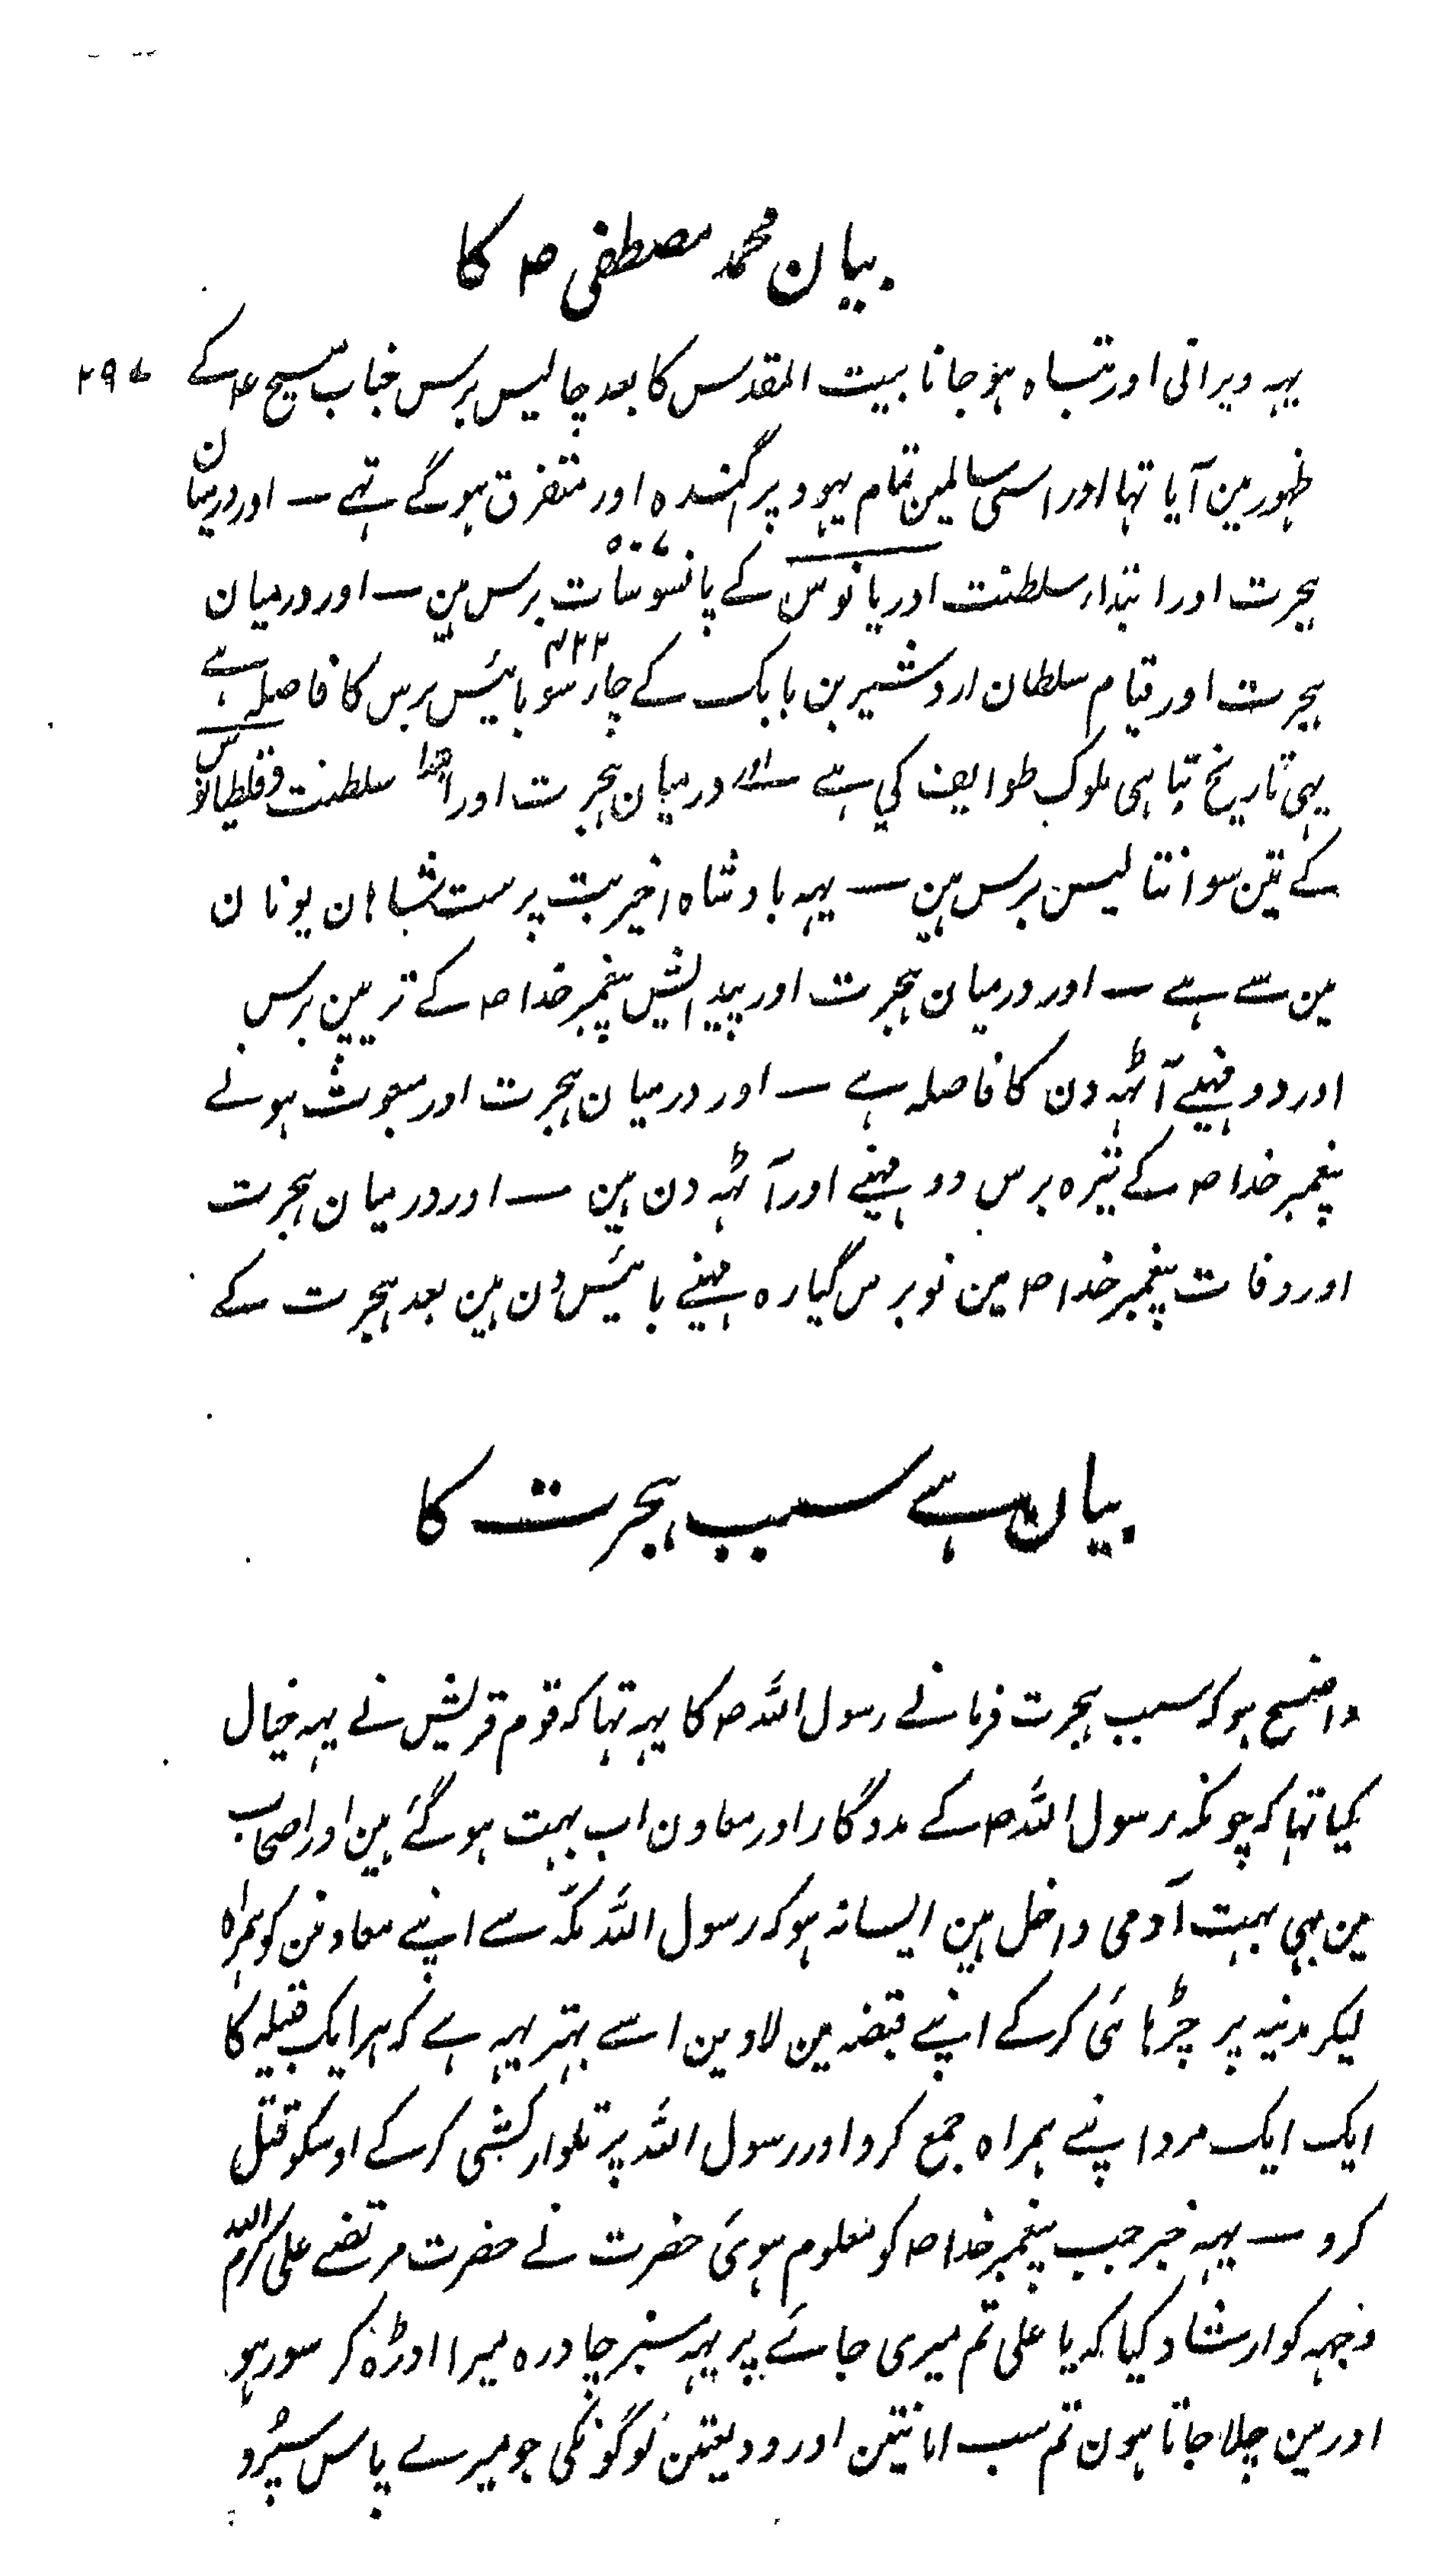 بیان محمد مصطفی ص کا
یہہ ویرانی اور تباہ ہوجانا بیت المقدس کا بعد چالیس برس جناب مسیح ع کے
۲۹۷
ظہور مین آیا تہا اور اسی سالمین تمام یہود پراگندہ اور متفرق ہوگے تہے — اور درمیان
ہجرت اور ابتداء سلطنت ادریانوس کے پانسو سات ۵۰۷ برس ہین — اور درمیان
ہجرت اور قیام سلطان اردشیر بن بابک کے چار سو بائیس ۴۲۲ برس کا فاصلہ ہے
یہی تاریخ تباہی ملوک طوایف کی ہے — اور درمیان ہجرت اور ابتدا سلطنت دقلطیانوس
کے تین سو انتالیس برس ہین — یہہ بادشاہ اخیر بت پرست شاہان یونان
مین سے ہے — اور درمیان ہجرت اور پیدایش پیغمبر خدا ص کے ترپین برس
اور دو مہینے آٹہہ دن کا فاصلہ ہے — اور درمیان ہجرت اور مبعوث ہونے
پیغمبر خدا ص کے تیرہ برس دو مہینے اور آٹہہ دن ہین — اور درمیان ہجرت
اور وفات پیغمبر خدا ص مین نو برس گیارہ مہینے بائیس دن ہین بعد ہجرت کے
بیان ہے سبب ہجرت کا
واضح ہو کہ سبب ہجرت فرمانے رسول اللہ ص کا یہہ تہا کہ قوم قریش نے یہہ خیال
کیا تہا کہ چونکہ رسول اللہ ص کے مددگار اور معاون اب بہت ہوگئے ہین اور اصحاب
مین بہی بہت آدمی داخل ہین ایسا نہ ہو کہ رسول اللہ مکہ سے اپنے معاونن کو ہمراہ
لیکر مدینہ پر چڑہائی کرکے اپنے قبضہ مین لاوین اسے بہتر یہہ ہے کہ ہر ایک قبیلہ کا
ایک ایک مرد اپنے ہمراہ جمع کرو اور رسول اللہ پر تلوار کشی کرکے اوسکو قتل
کرو — یہہ خبر جب پیغمبر خدا ص کو معلوم ہوئی حضرت نے حضرت مرتضے علی کرم اللہ
وجہہ کو ارشاد کیا کہ یا علی تم میری جائے پر یہہ سبز چادرہ میرا اوڑہ کر سو رہو
اور مین چلا جاتا ہون تم سب امانتین اور ودیعتین لوگونکی جو میرے پاس سپرد